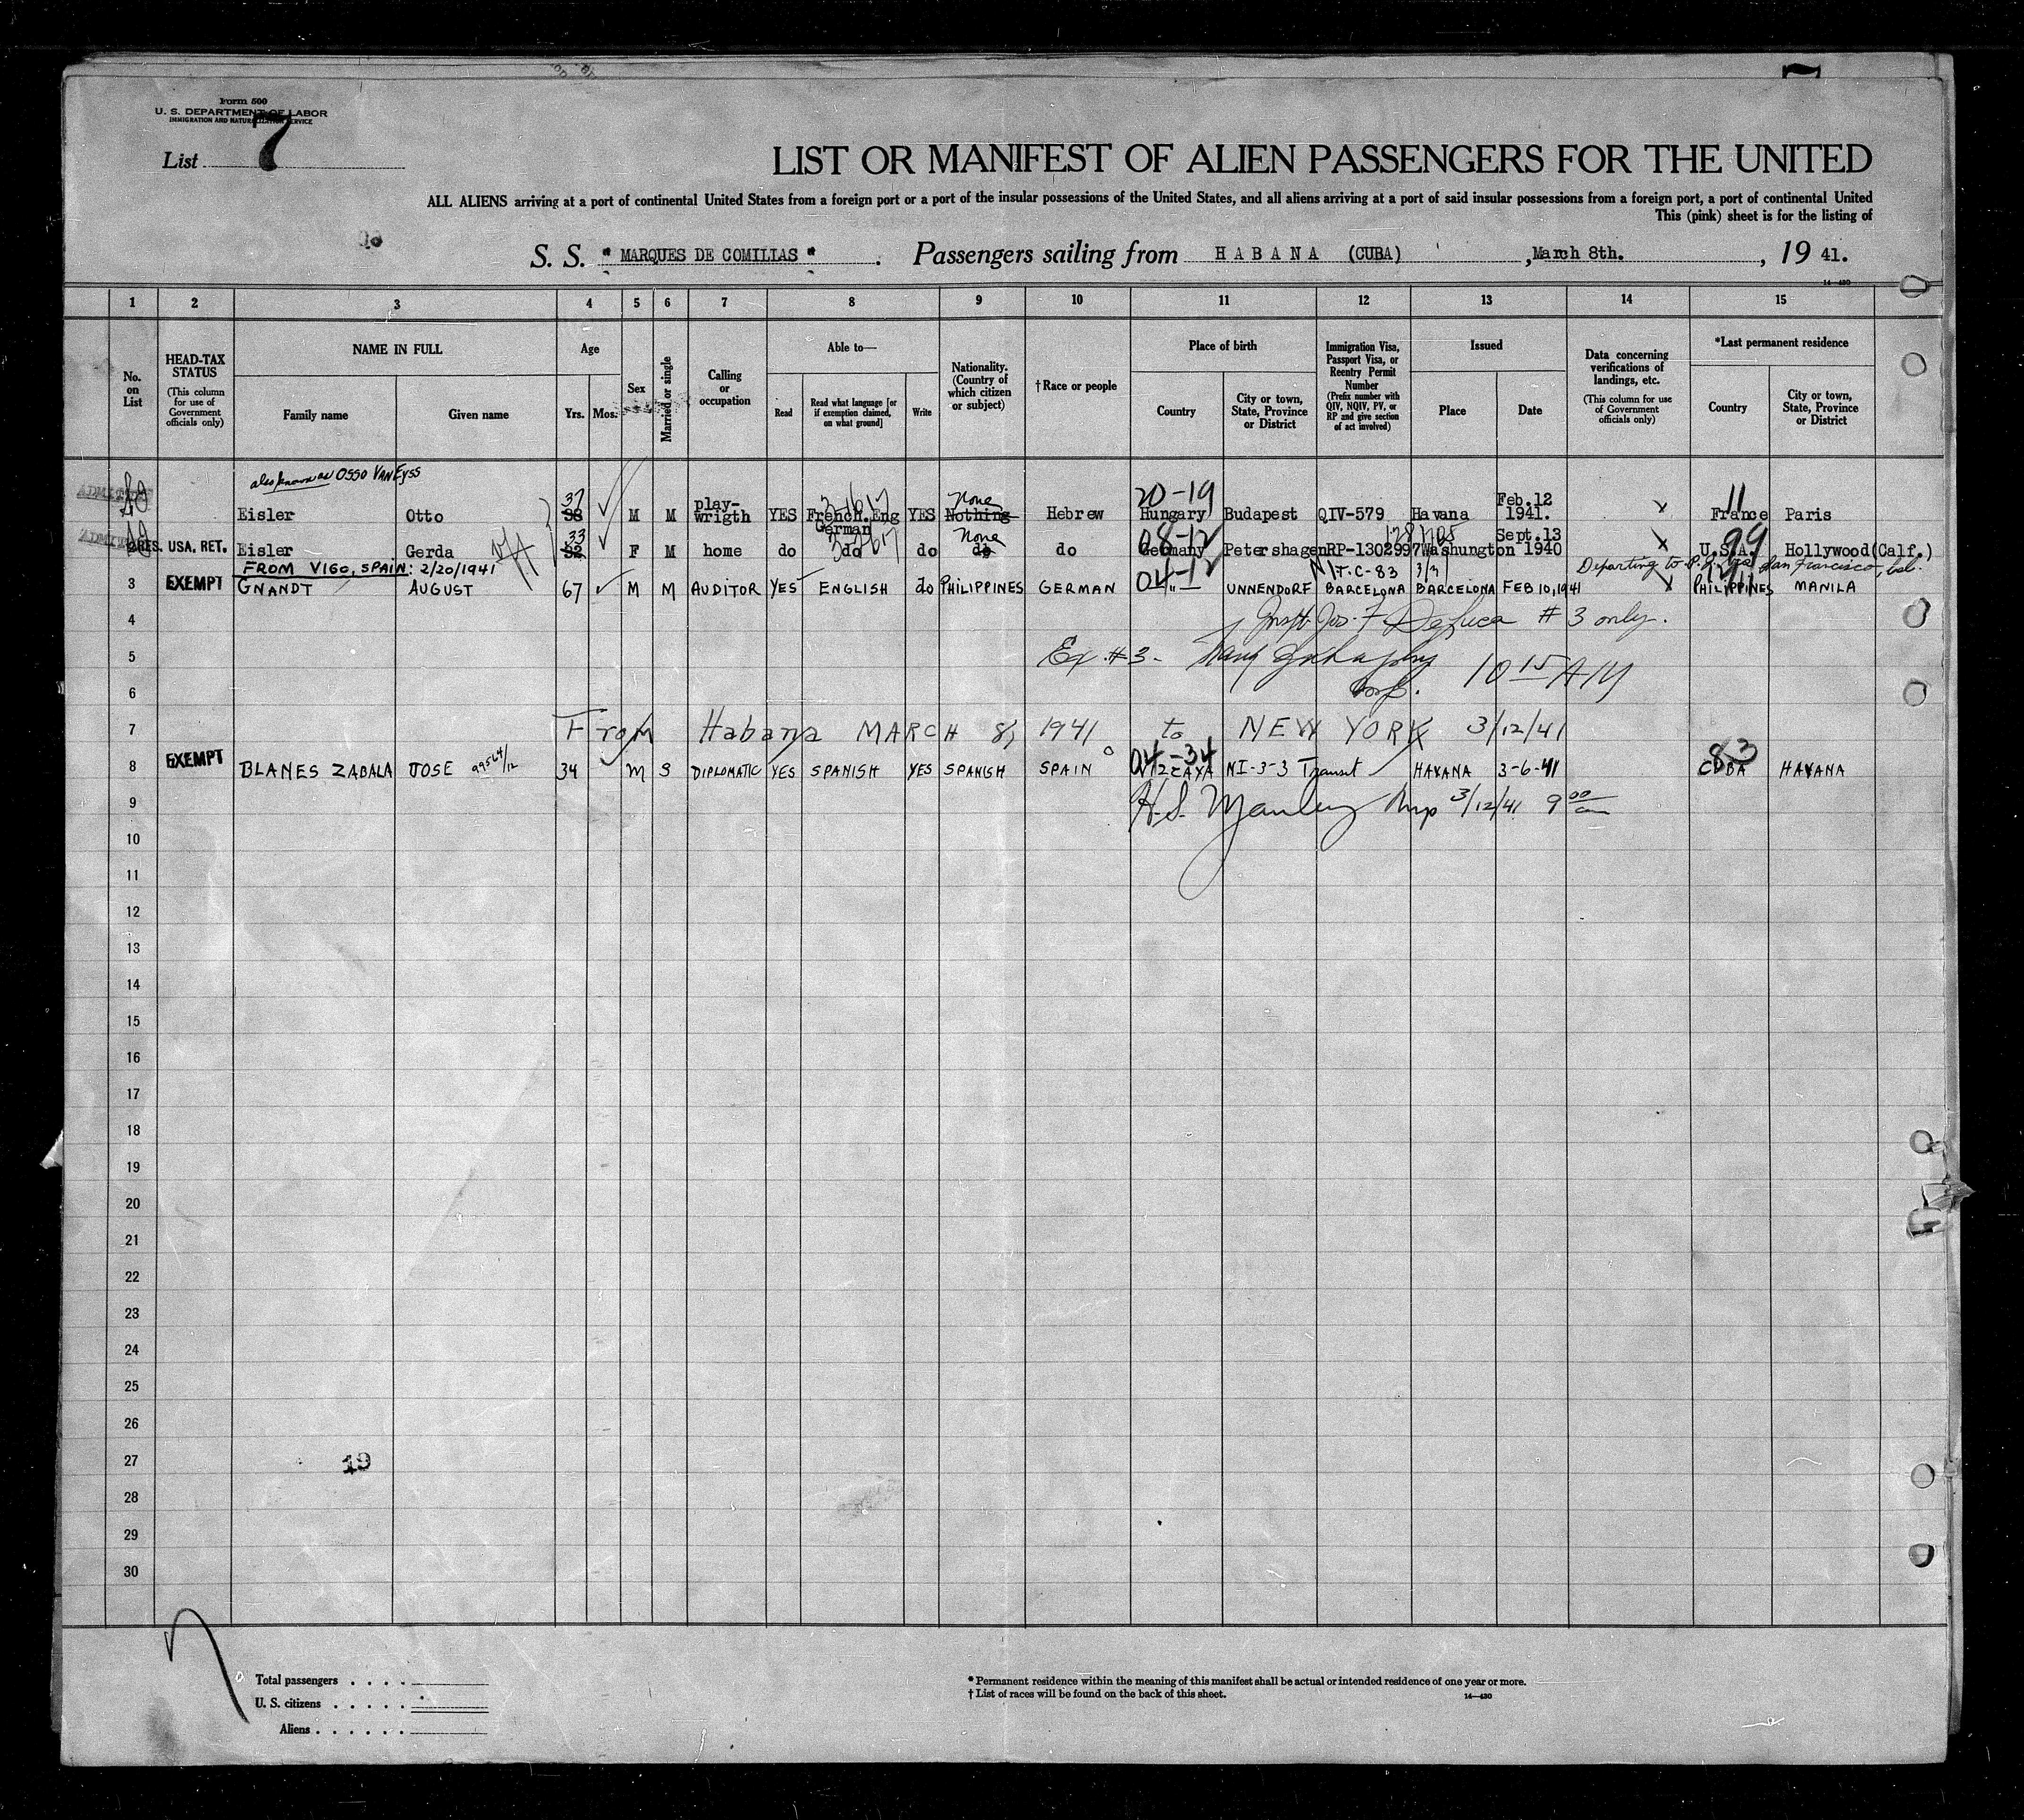 Form 500
U. S. DEPARTMENT OF LABOR
IMMIGRATION AND NATURALIZATION SERVICE
List 7
LIST OR MANIFEST OF ALIEN PASSENGERS FOR THE UNITED
ALL ALIENS arriving at a port of continental United States from a foreign port or a port of the insular possessions of the United States, and all aliens arriving at a port of said insular possessions from a foreign port, a port of continental United
This (pink) sheet is for the listing of
S. S. " MARQUES DE COMILIAS " . Passengers sailing from HABANA (CUBA) , March 8th. , 19 41.
14—430
1 2 3 4 5 6 7 8 9 10 11 12 13 14 15
No. on List
HEAD-TAX STATUS
(This column for use of Government officials only)
NAME IN FULL
Family name
Given name
Age
Yrs. Mos.
Sex
Married or single
Calling or occupation
Able to—
Read
Read what language [or if exemption claimed, on what ground]
Write
Nationality. (Country of which citizen or subject)
† Race or people
Place of birth
Country
City or town, State, Province or District
Immigration Visa, Passport Visa, or Reentry Permit Number
(Prefix number with QIV, NQIV, PV, or RP and give section of act involved)
Issued
Place
Date
Data concerning verifications of landings, etc.
(This column for use of Government officials only)
*Last permanent residence
Country
City or town, State, Province or District
also known as OSSO VAN EYSS
ADMITTED
37 20-19 11
Eisler Otto 38 M M play-wrigth YES French.Eng German YES Nothing None Hebrew Hungary Budapest QIV-579 Havana Feb.12 1941. France Paris
33 08-12 99
2 RES. USA. RET. Eisler Gerda 32 F M home do do do do None do Germany Petershagen RP-1302997 Washungton Sept.13 1940 U.S.A. Hollywood(Calf.)
FROM VIGO, SPAIN: 2/20/1941
Departing to P.I. via San Francisco, Cal.
T.C-83 3/3
3 EXEMPT GNANDT AUGUST 67 M M AUDITOR YES ENGLISH do PHILIPPINES GERMAN 04-12 UNNENDORF BARCELONA BARCELONA FEB 10, 1941 PHILIPPINES MANILA
4 Inspt. Jos. F # 3 only.
5 Ex. #3-
6 10 15 AM
7 From Habana MARCH 8, 1941 to NEW YORK 3/12/41
8 EXEMPT BLANES ZABALA JOSE 99564/12 34 M S DIPLOMATIC YES SPANISH YES SPANISH SPAIN 04-34 VIZCAYA NI-3-3 Transit HAVANA 3-6-41 83 CUBA HAVANA
9 H.S. Manley Insp 3/12/41 9 00 am
10
11
12
13
14
15
16
17
18
19
20
21
22
23
24
25
26
27
19
28
29
30
Total passengers . . . .
U. S. citizens . . . . .
Aliens . . . . . .
* Permanent residence within the meaning of this manifest shall be actual or intended residence of one year or more.
† List of races will be found on the back of this sheet.
14—430